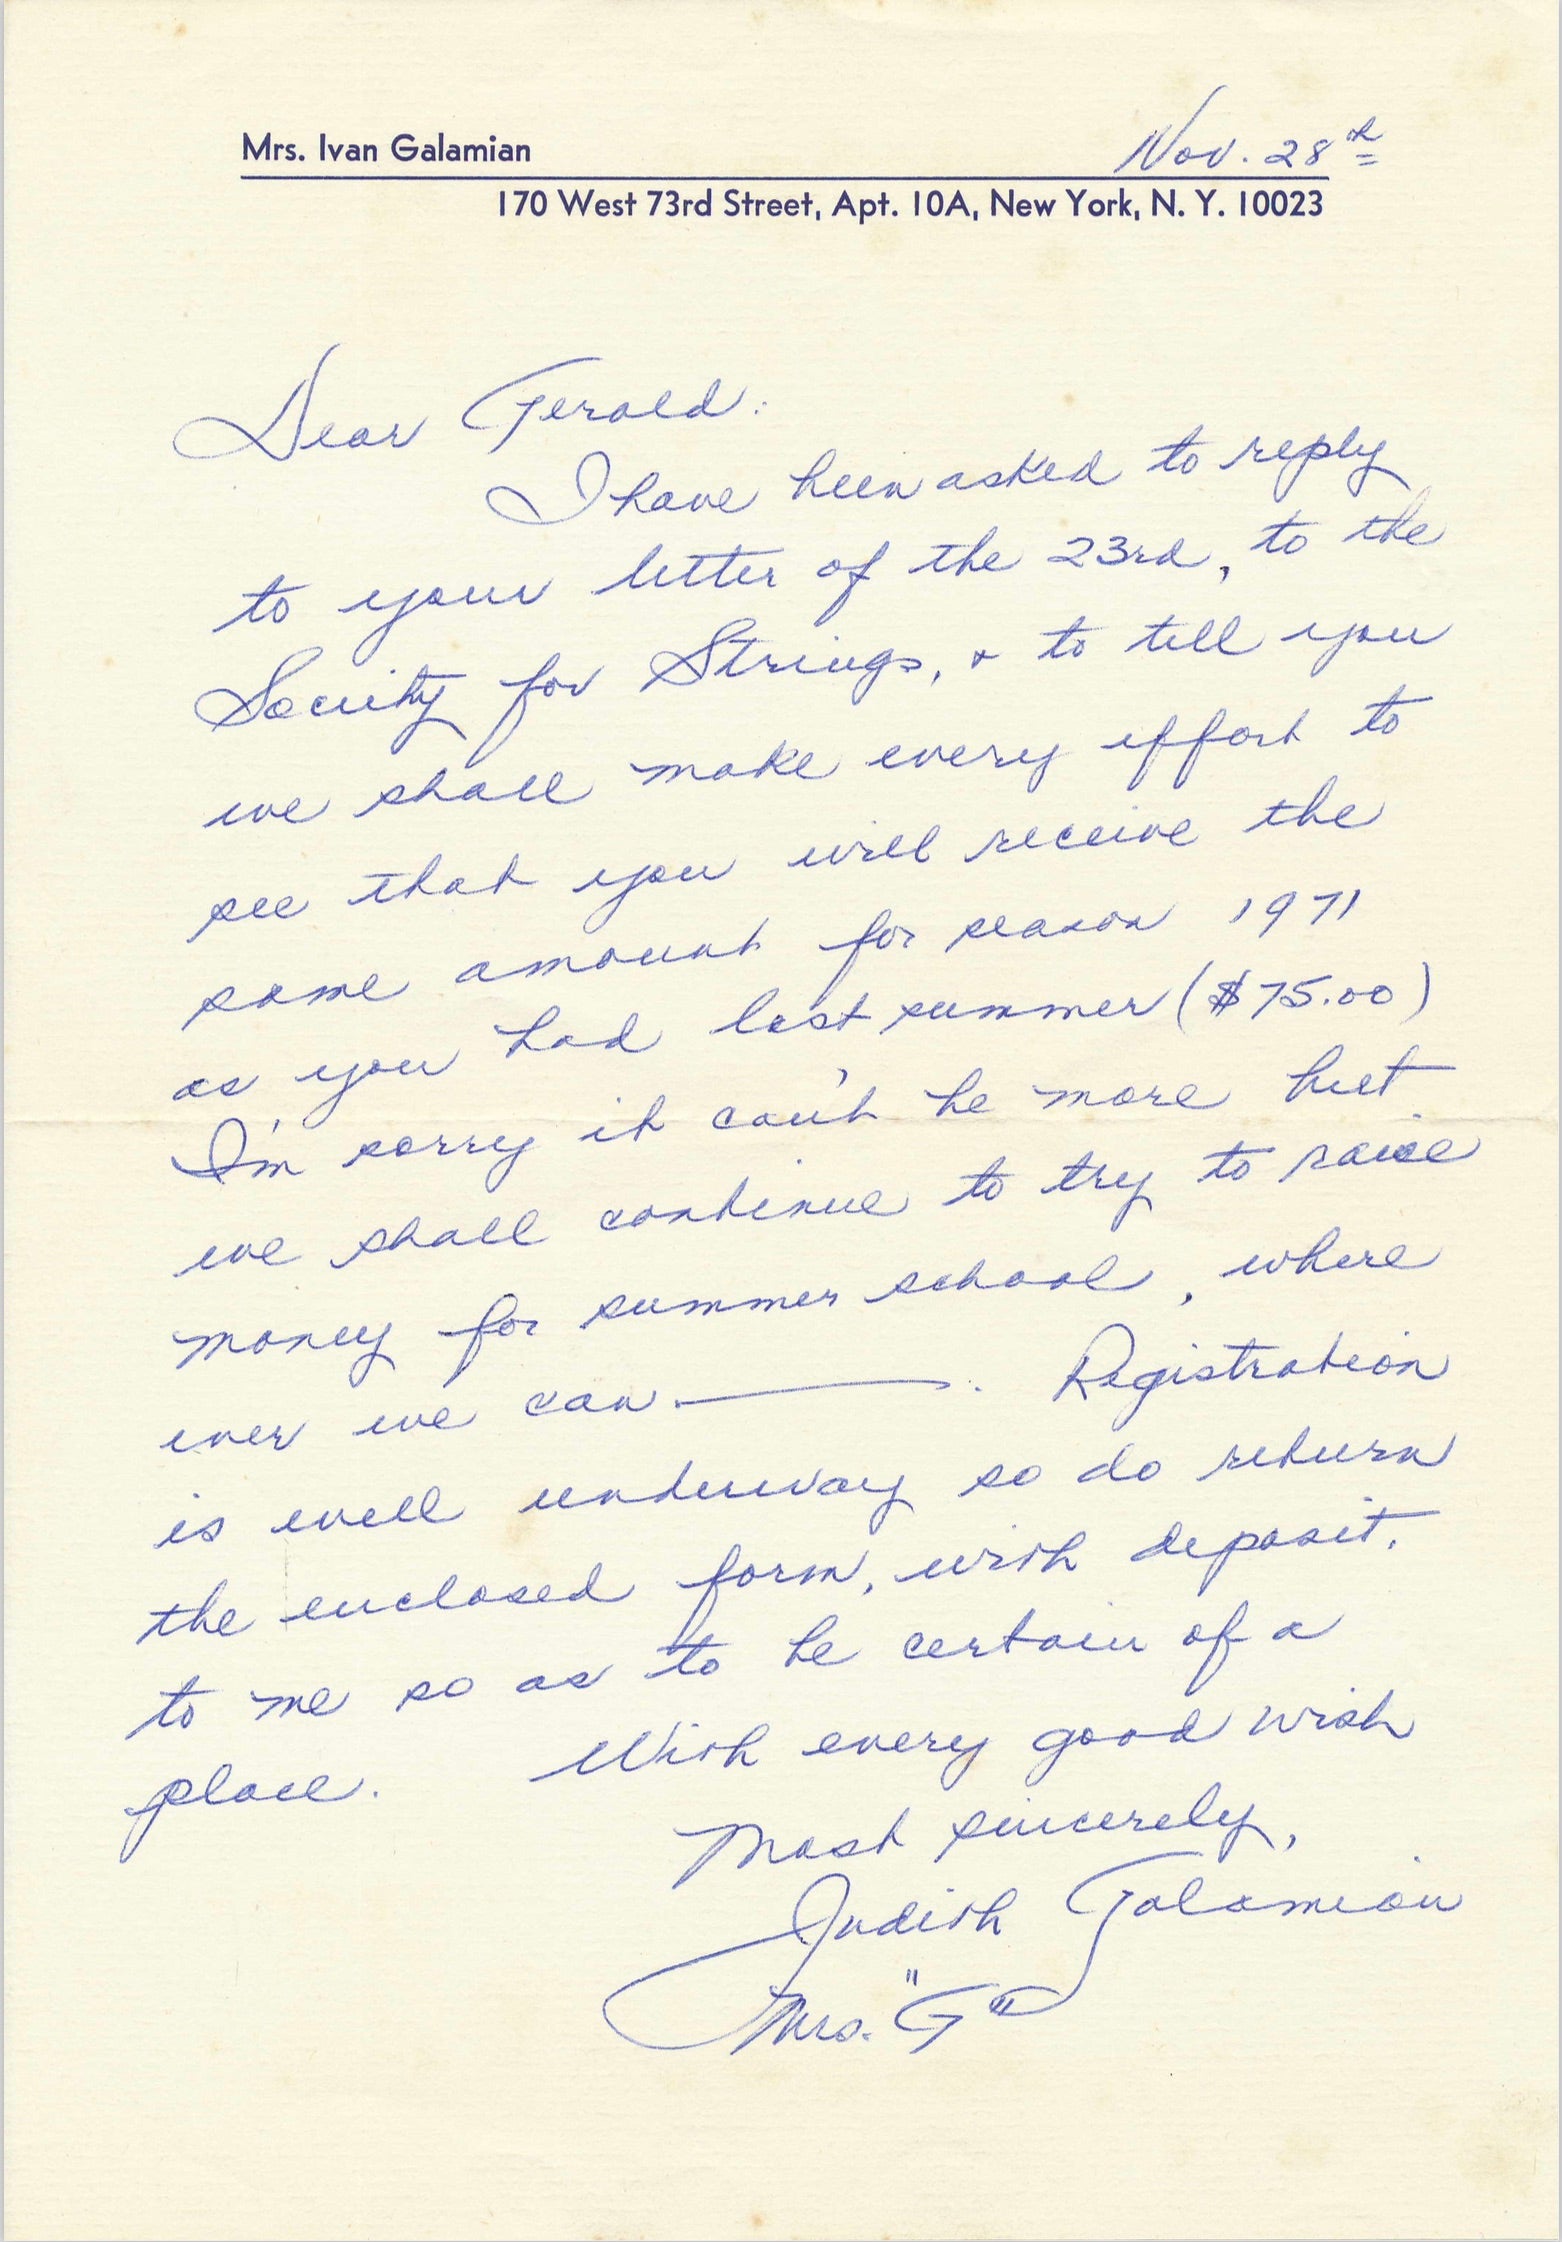 Mrs. Ivan Galamian
Nov. 28th
170 West 73rd Street, Apt. 10A, New York, N. Y. 10023
Dear Gerald:
I have been asked to reply
to your letter of the 23rd, to the
Society for Strings, & to tell you
we shall make every effort to
see that you will receive the
same amount for season 1971
as you had last summer ($75.00)
I'm sorry it can't be more but
we shall continue to try to raise
money for summer school, where
ever we can ———. Registration
is well underway so do return
the enclosed form, with deposit.
to me so as to be certain of a
place. With every good wish
Most sincerely,
Judith Galamian
Mrs. "G"